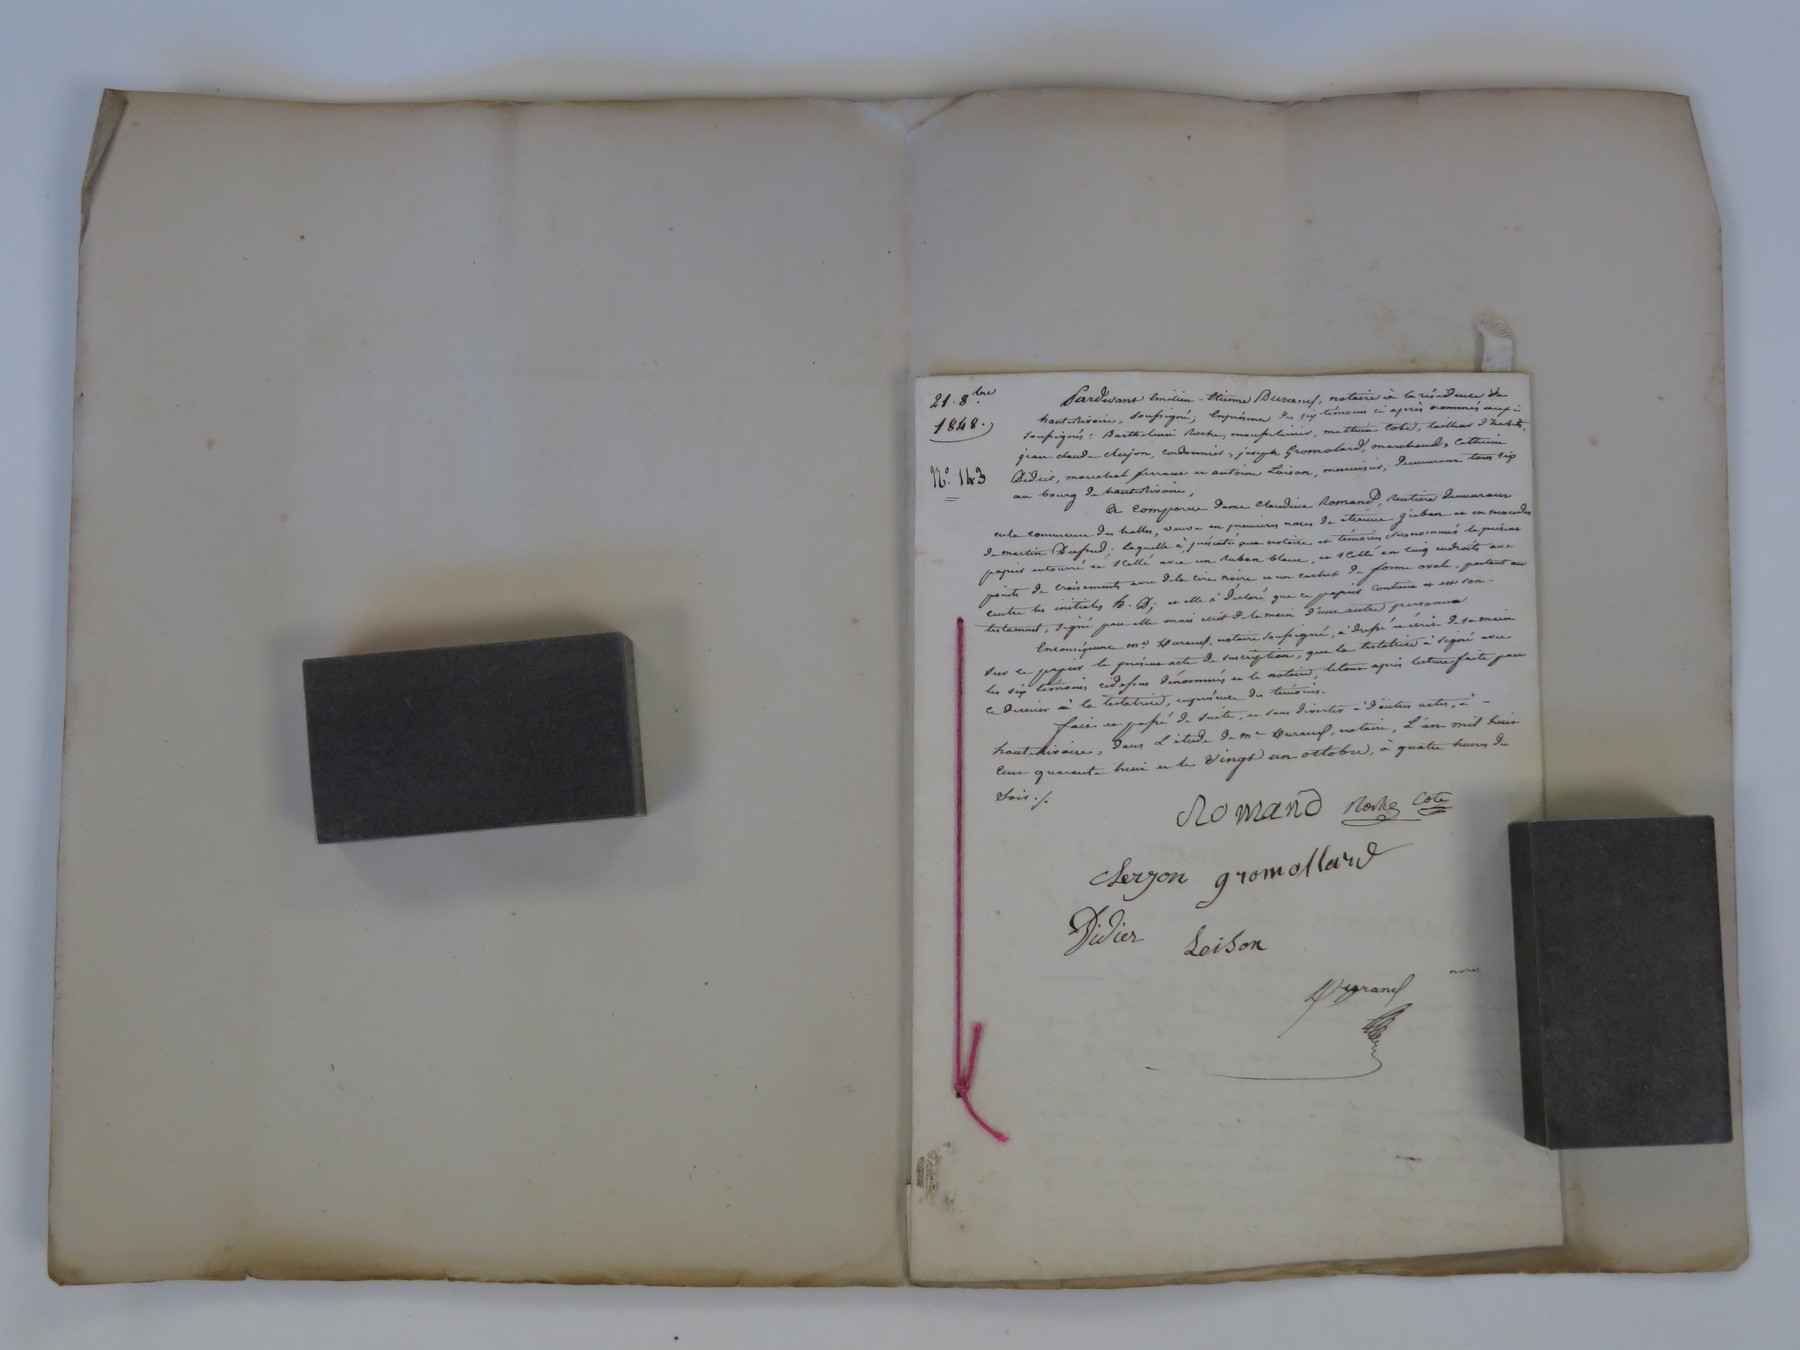 21. 8bre
1848.
N° 143
Pardevant Emilien-Etienne Durand, notaire à la résidence de
haut-Rivoire, soussigné; En présence des six témoins ci après nommés aussi
soussignés: Barthelemi Roche, mathieu Cote, tailleur d'habits,
jean claude cordonnier, joseph Gromolard, marchand,
Didier, marechal ferrant et antoine Loison, menuisier, demeurant tous six
au bourg de haut-Rivoire,
A Comparue dame Claudine Romand, Rentière demeurant
en la commune des halles, veuve en premières noces de étienne et en secondes
de martin; laquelle à présenté aux notaire et témoins susnommés le présent
papier entourré et scellé avec un ruban blanc, et scellé en cinq endroits aux
points de croisements avec de la cire noire et un cachet de forme ovale, portant au
centre les initiales D; et elle à déclaré que ce papier contient est son
testament, signé par elle mais écrit de la main d'une autre personne.
En conséquence me Durand, notaire soussigné, à dressé et écrit de sa main
sur ce papier le présent acte de suscription, que la testatrice à signé avec
les six témoins cidessus dénommés et le notaire, le tout après lecture faite par
ce dernier à la testatrice, en présence des témoins.
fait et passé de suite, et sans divertir à d'autres actes, à
haut-Rivoire, dans L'étude de me Durand, notaire, L'an mil huit
cent quarante huit et le vingt un octobre, à quatre heures du
soir./.
Romand Roche Cote
gromollard
Didier Loison
Durand nore